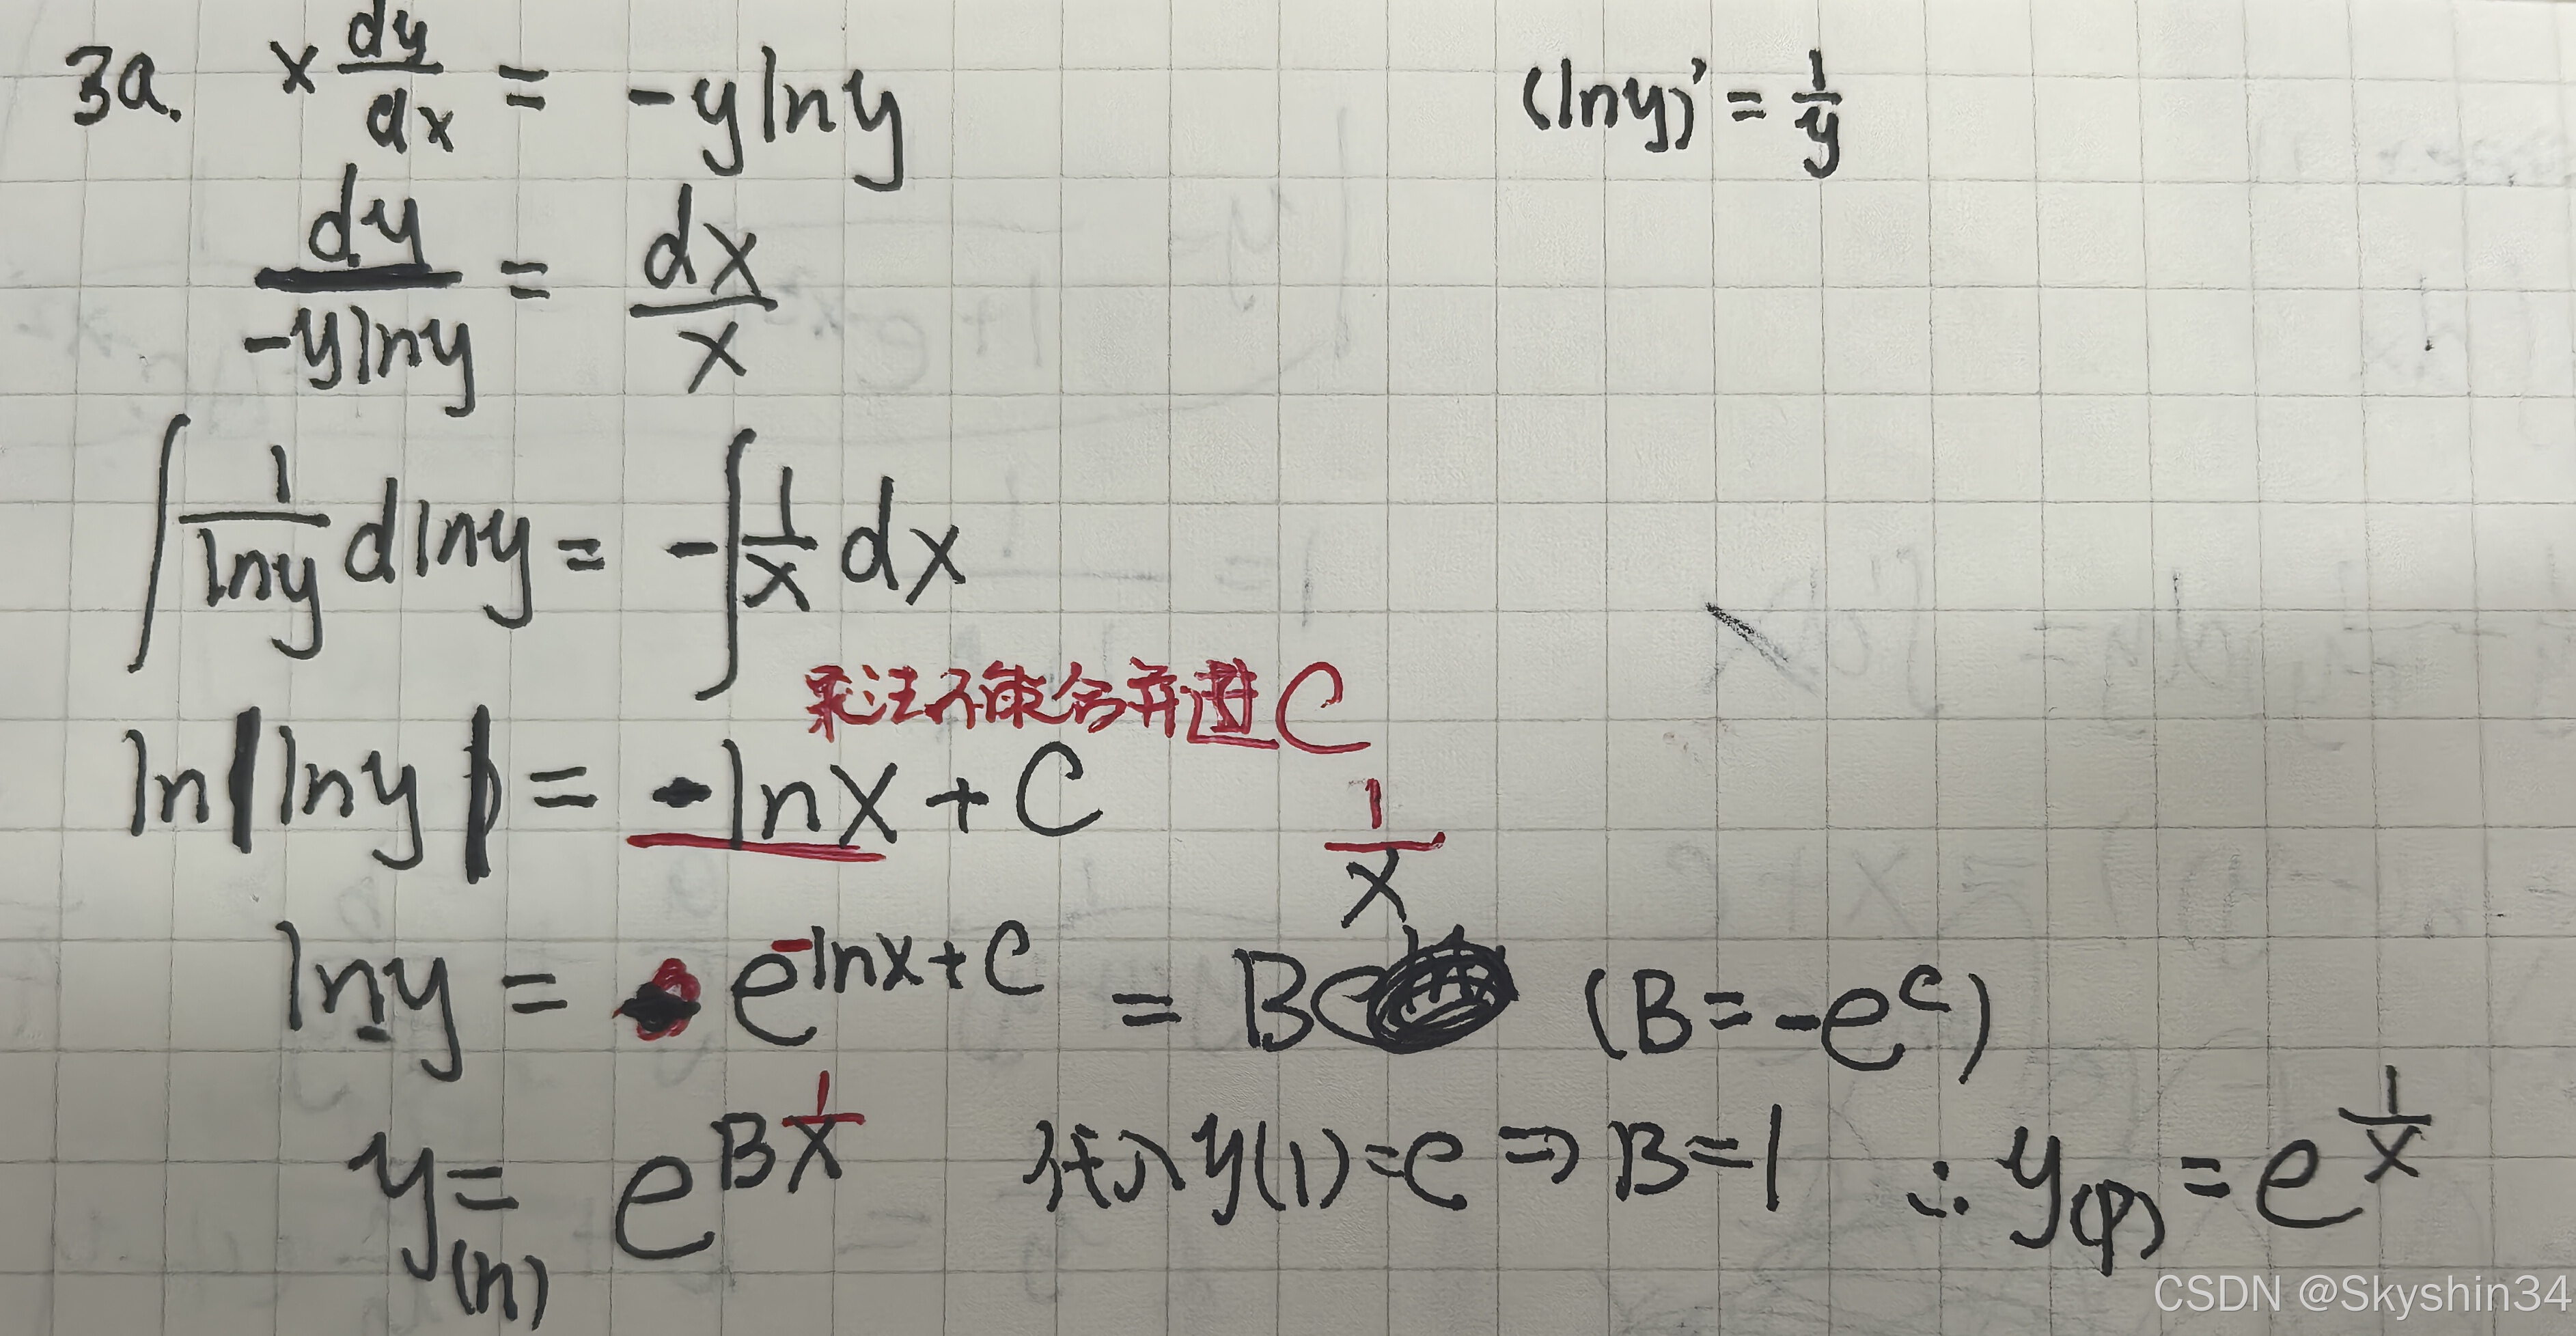 3a. x dy/dx = -y ln y (ln y)' = 1/y
dy/(-y ln y) = dx/x
∫ 1/(ln y) d ln y = -∫ 1/x dx
乘法不能合并进C
ln|ln y| = -ln x + C
ln y = e^(-ln x + C) = B 1/x (B = -e^C)
y(n) = e^(B 1/x) 代入 y(1) = e ⇒ B = 1 ∴ y(p) = e^(1/x)
CSDN @Skyshin34